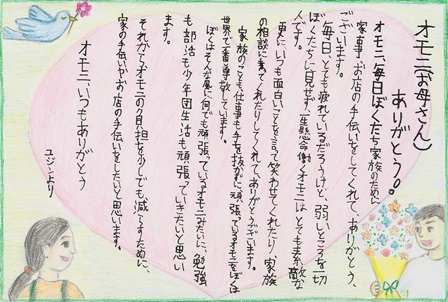 オモニ(お母さん)
ありがとう。
オモニ、毎日ぼくたち家族のために
家事やお店の手伝いをしてくれて、ありがとう
ございます。
毎日、とても疲れているだろうけど、弱いところを一切
ぼくたちに見せず、一生懸命働くオモニはとても素敵な
人です。
更に、いつも面白いことを言って笑わせてくれたり、家族
の相談に乗ってくれたりしてくれて、ありがとうございます。
家族のことも、仕事も手を抜かずに頑張っているオモニをぼくは
世界で一番尊敬しています。
ぼくはそんな風に何でも頑張っているオモニみたいに、勉強
も部活も少年団生活も頑張っていきたいと思い
ます。
それからオモニの負担を少しでも減らすために、
家の手伝いやお店の手伝いをしたいと思います。
オモニ、いつもありがとう
ユジンより